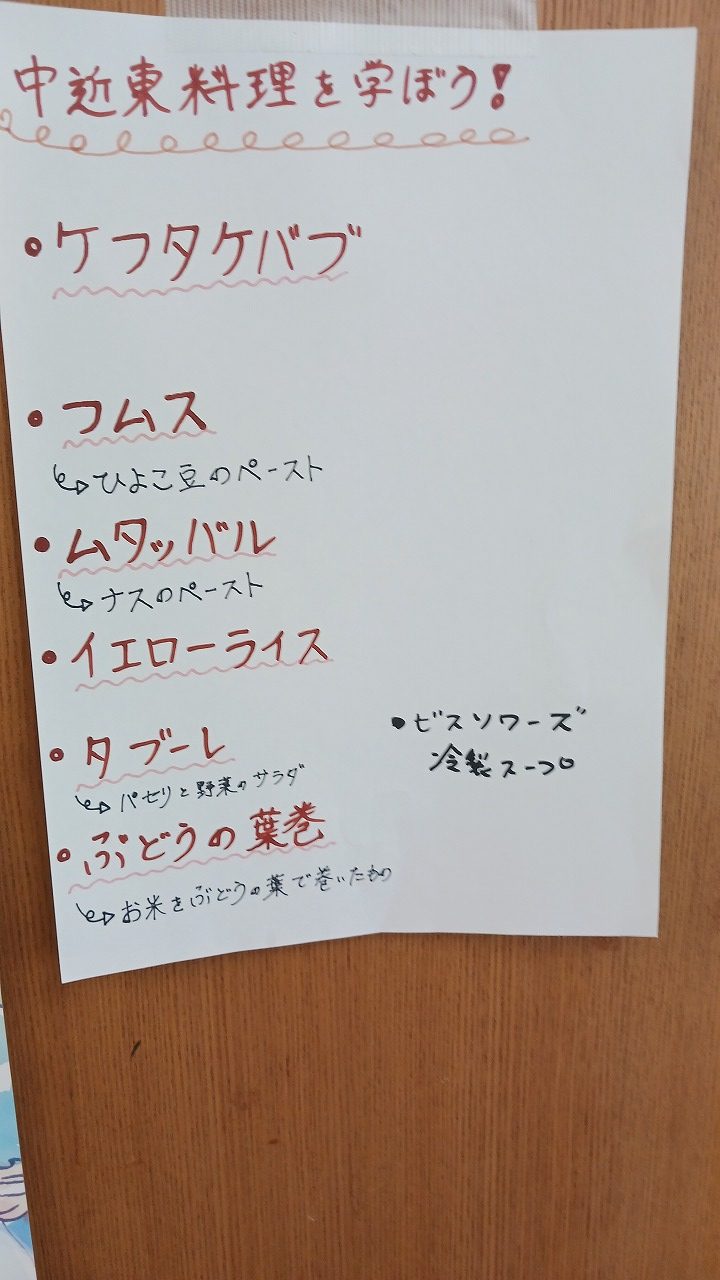 中近東料理を学ぼう!
・ケフタケバブ
・フムス
↳ひよこ豆のペースト
・ムタッバル
↳ナスのペースト
・イエローライス
・タブーレ
↳パセリと野菜のサラダ
・ぶどうの葉巻
↳お米をぶどうの葉で巻いたもの
・ビスソワーズ
冷製スープ